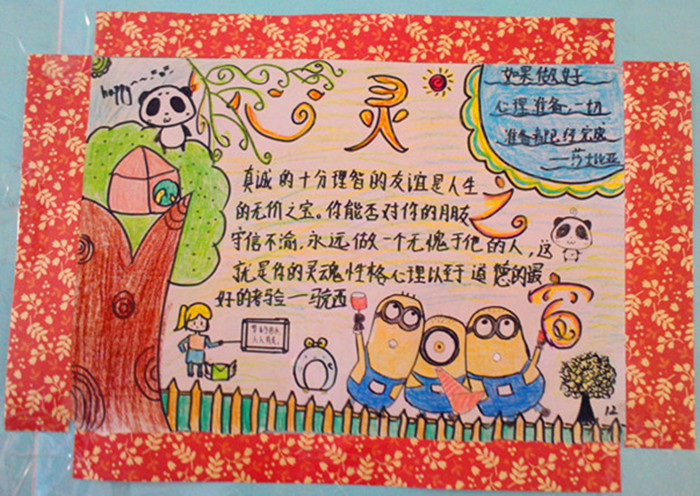 happy
心灵之窗
如果做好
心理准备,一切
准备都已经完成
——莎士比亚
真诚的十分理智的友谊是人生
的无价之宝。你能否对你的朋友
守信不渝,永远做一个无愧于他的人,这
就是你的灵魂性格心理以至道德的最
好的考验—马克西
12